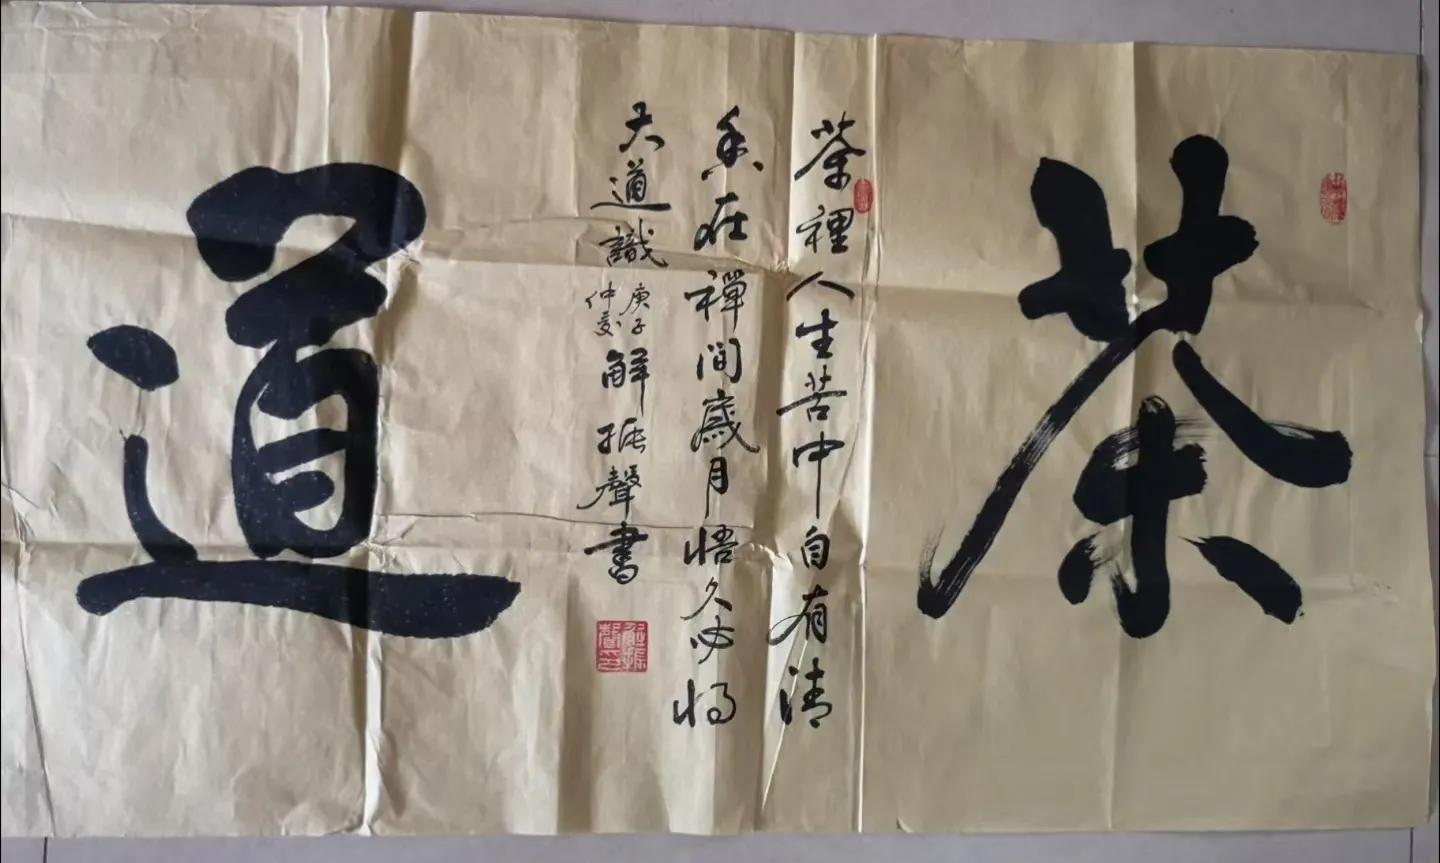 茶
茶裡人生苦中自有清
香在禪間歲月悟久必將
大道識
庚子
仲夏
解振聲書
道